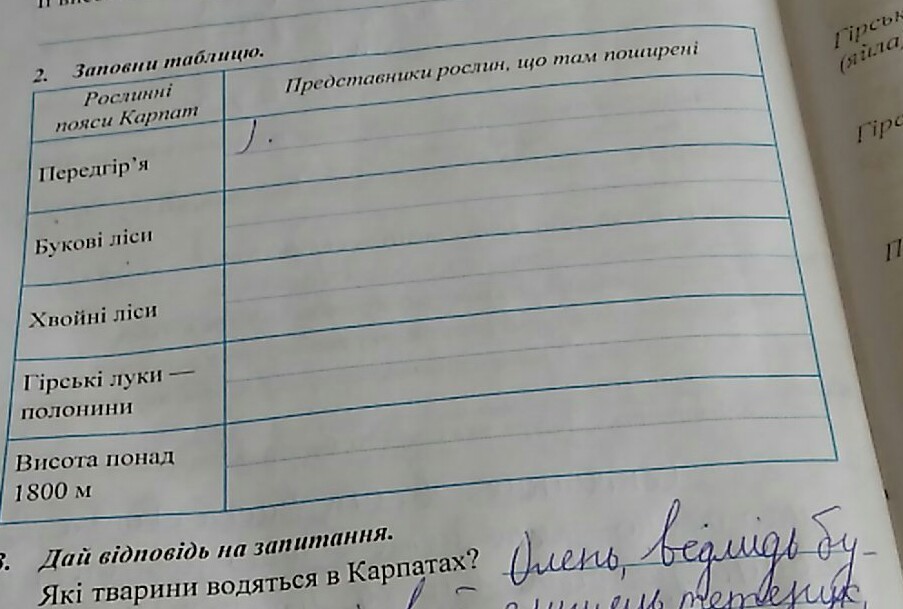 2. Заповни таблицю.
Рослинні
пояси Карпат
Представники рослин, що там поширені
Передгір’я
Букові ліси
Хвойні ліси
Гірські луки —
полонини
Висота понад
1800 м
3. Дай відповідь на запитання.
Які тварини водяться в Карпатах? Олень, ведмідь бу-